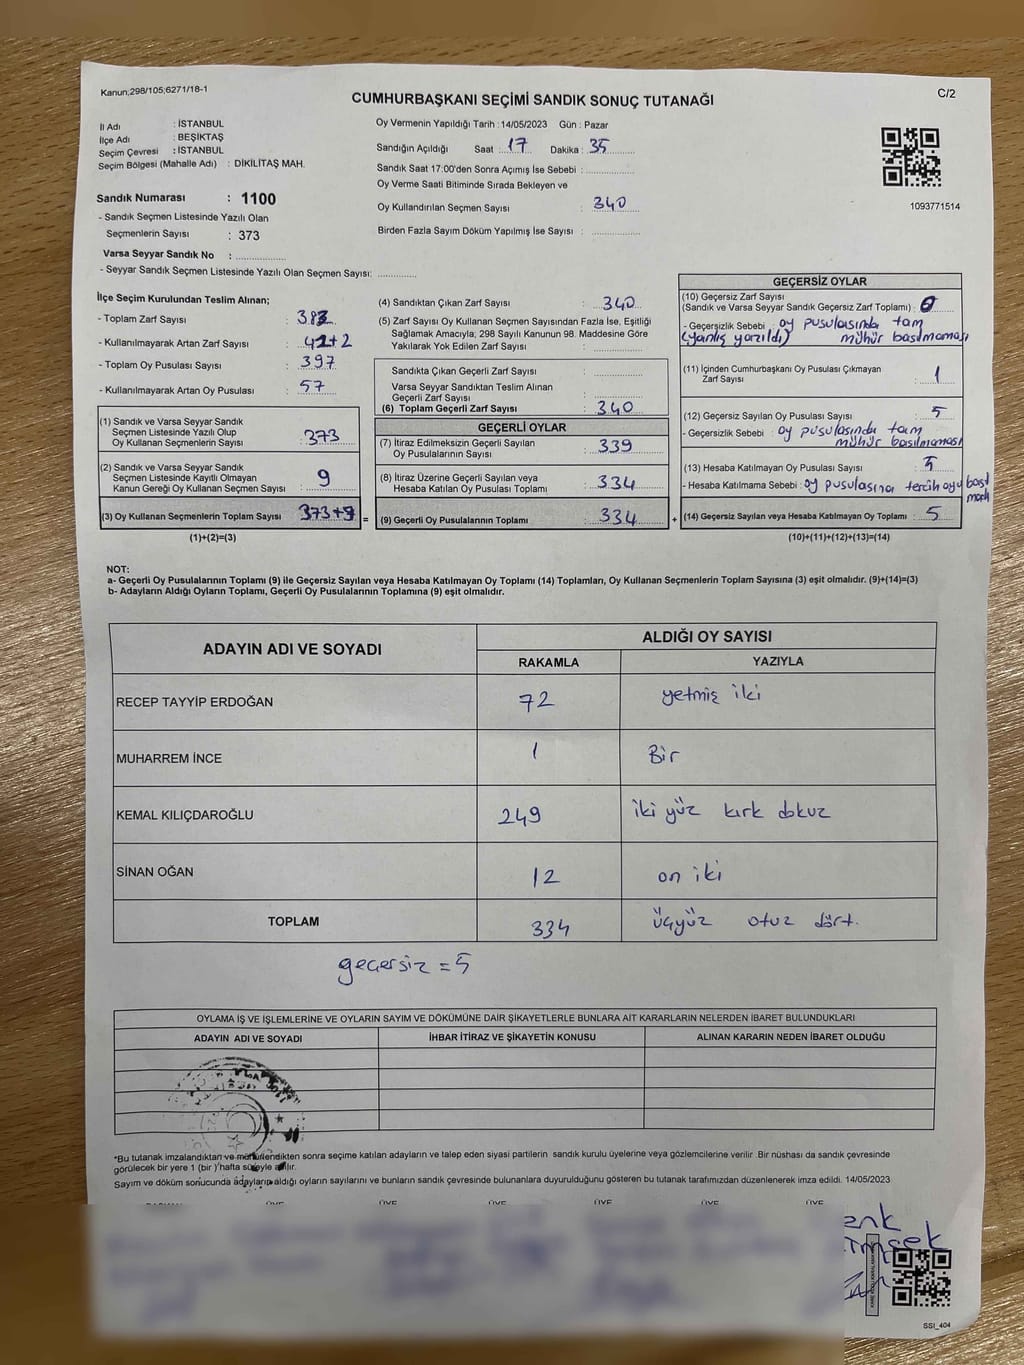 Kanun;298/105;6271/18-1
C/2
CUMHURBAŞKANI SEÇİMİ SANDIK SONUÇ TUTANAĞI
İl Adı : İSTANBUL
İlçe Adı : BEŞİKTAŞ
Seçim Çevresi : İSTANBUL
Seçim Bölgesi (Mahalle Adı) : DİKİLİTAŞ MAH.
Sandık Numarası : 1100
- Sandık Seçmen Listesinde Yazılı Olan
Seçmenlerin Sayısı : 373
Varsa Seyyar Sandık No :
- Seyyar Sandık Seçmen Listesinde Yazılı Olan Seçmen Sayısı:
Oy Vermenin Yapıldığı Tarih : 14/05/2023 Gün : Pazar
Sandığın Açıldığı Saat : 17 Dakika : 35
Sandık Saat 17:00'den Sonra Açımış İse Sebebi :
Oy Verme Saati Bitiminde Sırada Bekleyen ve
Oy Kullandırılan Seçmen Sayısı : 340
Birden Fazla Sayım Döküm Yapılmış İse Sayısı :
1093771514
İlçe Seçim Kurulundan Teslim Alınan;
- Toplam Zarf Sayısı : 382
- Kullanılmayarak Artan Zarf Sayısı : 41+2
- Toplam Oy Pusulası Sayısı : 397
- Kullanılmayarak Artan Oy Pusulası : 57
(1) Sandık ve Varsa Seyyar Sandık
Seçmen Listesinde Yazılı Olup
Oy Kullanan Seçmenlerin Sayısı : 373
(2) Sandık ve Varsa Seyyar Sandık
Seçmen Listesinde Kayıtlı Olmayan
Kanun Gereği Oy Kullanan Seçmen Sayısı : 9
(3) Oy Kullanan Seçmenlerin Toplam Sayısı : 373+9 =
(1)+(2)=(3)
(4) Sandıktan Çıkan Zarf Sayısı : 340
(5) Zarf Sayısı Oy Kullanan Seçmen Sayısından Fazla İse, Eşitliği
Sağlamak Amacıyla; 298 Sayılı Kanunun 98. Maddesine Göre
Yakılarak Yok Edilen Zarf Sayısı :
Sandıkta Çıkan Geçerli Zarf Sayısı :
Varsa Seyyar Sandıktan Teslim Alınan
Geçerli Zarf Sayısı :
(6) Toplam Geçerli Zarf Sayısı : 340
GEÇERLİ OYLAR
(7) İtiraz Edilmeksizin Geçerli Sayılan
Oy Pusulalarının Sayısı : 339
(8) İtiraz Üzerine Geçerli Sayılan veya
Hesaba Katılan Oy Pusulası Toplamı : 334
(9) Geçerli Oy Pusulalarının Toplamı : 334 +
GEÇERSİZ OYLAR
(10) Geçersiz Zarf Sayısı
(Sandık ve Varsa Seyyar Sandık Geçersiz Zarf Toplamı) : 0
- Geçersizlik Sebebi : oy pusulasında tam
(yanlış yazıldı) mühür basılmaması
(11) İçinden Cumhurbaşkanı Oy Pusulası Çıkmayan
Zarf Sayısı : 1
(12) Geçersiz Sayılan Oy Pusulası Sayısı : 5
- Geçersizlik Sebebi : oy pusulasında tam
mühür basılmaması
(13) Hesaba Katılmayan Oy Pusulası Sayısı : 5
- Hesaba Katılmama Sebebi : oy pusulasına tercih oyu
(14) Geçersiz Sayılan veya Hesaba Katılmayan Oy Toplamı : 5
(10)+(11)+(12)+(13)=(14)
NOT:
a- Geçerli Oy Pusulalarının Toplamı (9) ile Geçersiz Sayılan veya Hesaba Katılmayan Oy Toplamı (14) Toplamları, Oy Kullanan Seçmenlerin Toplam Sayısına (3) eşit olmalıdır. (9)+(14)=(3)
b- Adayların Aldığı Oyların Toplamı, Geçerli Oy Pusulalarının Toplamına (9) eşit olmalıdır.
ADAYIN ADI VE SOYADI ALDIĞI OY SAYISI
RAKAMLA YAZIYLA
RECEP TAYYİP ERDOĞAN 72 yetmiş iki
MUHARREM İNCE 1 Bir
KEMAL KILIÇDAROĞLU 249 iki yüz kırk dokuz
SİNAN OĞAN 12 on iki
TOPLAM 334 üçyüz otuz dört.
geçersiz = 5
OYLAMA İŞ VE İŞLEMLERİNE VE OYLARIN SAYIM VE DÖKÜMÜNE DAİR ŞİKAYETLERLE BUNLARA AİT KARARLARIN NELERDEN İBARET BULUNDUKLARI
ADAYIN ADI VE SOYADI İHBAR İTİRAZ VE ŞİKAYETİN KONUSU ALINAN KARARIN NEDEN İBARET OLDUĞU
*Bu tutanak imzalandıktan ve mühürlendikten sonra seçime katılan adayların ve talep eden siyasi partilerin sandık kurulu üyelerine veya gözlemcilerine verilir .Bir nüshası da sandık çevresinde
görülecek bir yere 1 (bir ) hafta süreyle asılır.
Sayım ve döküm sonucunda adayların aldığı oyların sayılarını ve bunların sandık çevresinde bulunanlara duyurulduğunu gösteren bu tutanak tarafımızdan düzenlenerek imza edildi. 14/05/2023
SSI_404